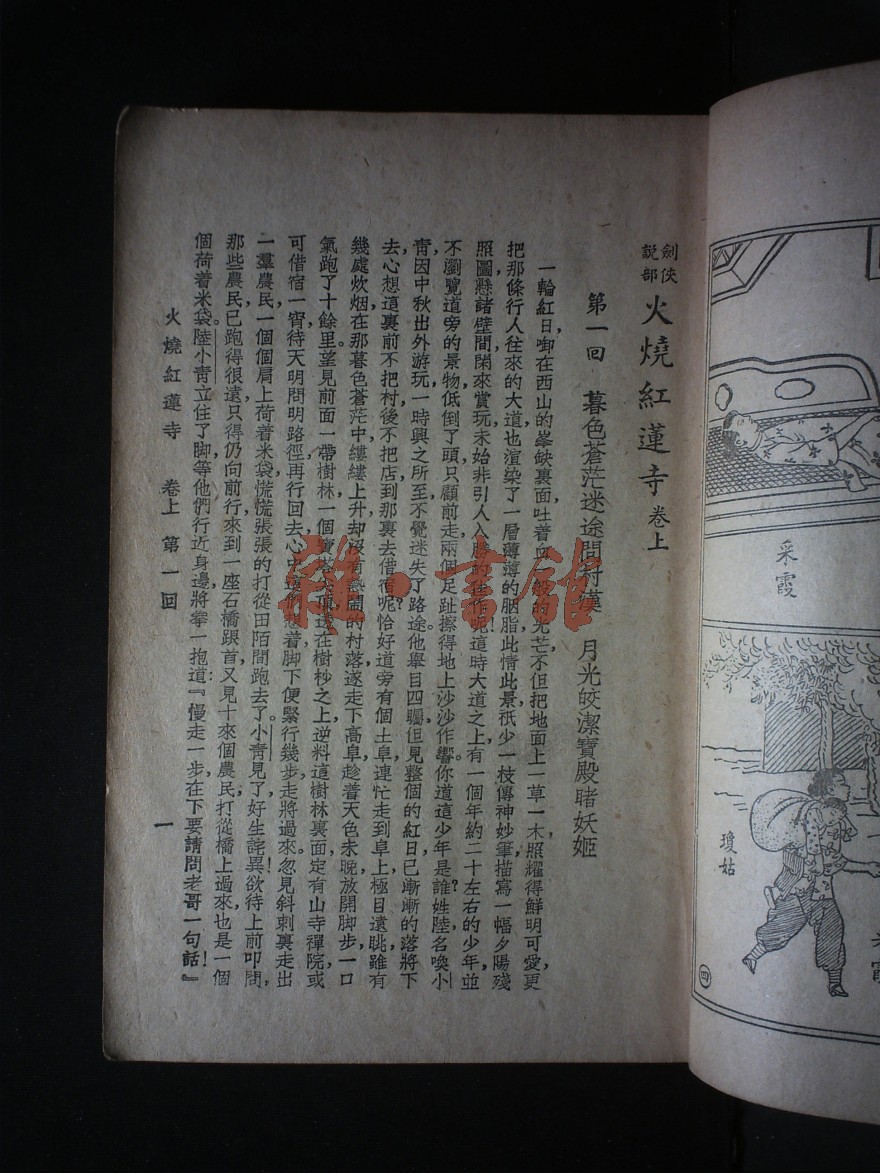 劍俠
説部
火燒紅蓮寺 卷上
第一回 暮色蒼茫迷途問村漢 月光皎潔寶殿睹妖姬
一輪紅日啣在西山的峯缺裏面,吐着血一般的光芒,不但把地面上一草一木照耀得鮮明可愛,更
把那條行人往來的大道也渲染了一層薄薄的胭脂,此情此景,祇少一枝傳神妙筆,描寫一幅夕陽殘
照圖,懸諸壁間,閑來賞玩,未始非引人入勝的佳作呢!這時大道之上,有一個年約二十左右的少年,並
不瀏覽道旁的景物,低倒了頭,只顧前走,兩個足趾擦得地上沙沙作響。你道這少年是誰?姓陸名喚小
青,因中秋出外游玩,一時興之所至,不覺迷失了路途,他舉目四矚,但見整個的紅日,已漸漸的落將下
去,心想這裏前不把村,後不把店,到那裏去借宿呢?恰好道旁有個土阜,連忙走到阜上,極目遠眺,雖有
幾處炊烟,在那暮色蒼茫中縷縷上升,却沒有熱鬧的村落,遂走下高阜,趁着天色未晚,放開脚步,一口
氣跑了十餘里,望見前面一帶樹林,一個寶塔尖頂,透在樹杪之上,逆料這樹林裏面,定有山寺禪院,或
可借宿一宵,待天明問明路徑,再行回去,心中這們想着,脚下便緊行幾步,走將過來。忽見斜刺裏走出
一羣農民,一個個肩上荷着米袋,慌慌張張的打從田陌間跑去了。小青見了,好生詫異!欲待上前叩問,
那些農民已跑得很遠,只得仍向前行,來到一座石橋跟首,又見十來個農民,打從橋上過來,也是一個
個荷着米袋。陸小青立住了脚,等他們行近身邊,將拳一抱道:『慢走一步,在下要請問老哥一句話!』
火燒紅蓮寺 卷上 第一回
一
采霞
瓊姑
四
雜·書館